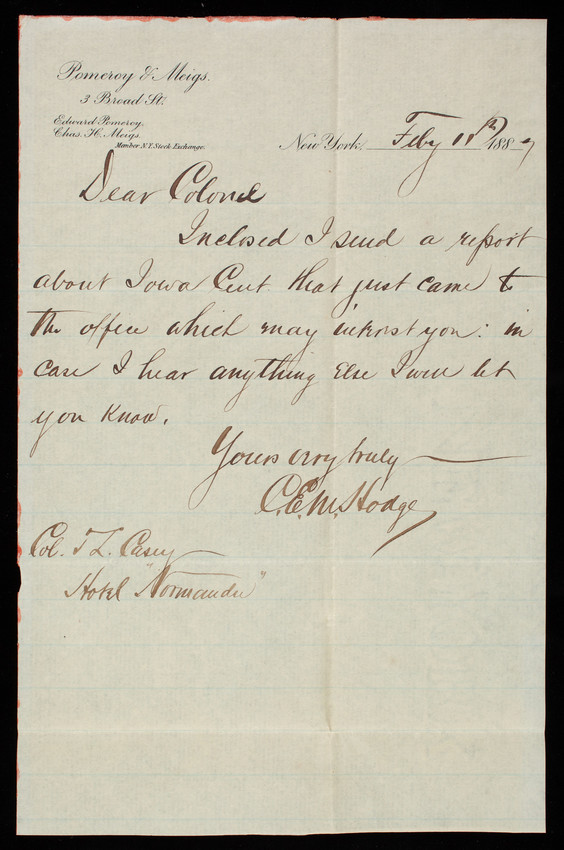 Pomeroy & Meigs.
3 Broad St.
Edward Pomeroy.
Chas. H. Meigs.
Member N.Y. Stock Exchange.
New York, Feby 18th 1887
Dear Colonel
Inclosed I send a report
about Iowa Cent. that just came to
the office which may interest you: in
case I hear anything Else I will let
you know.
Yours very truly
C.E.M. Hodge
Col. T L. Casey
Hotel "Normandie"